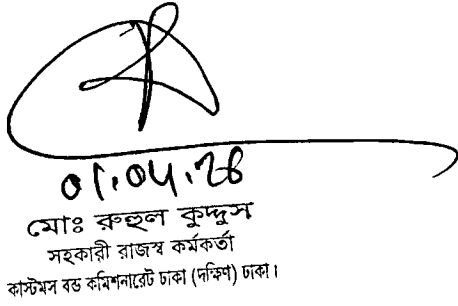 মোঃ রুহুল কুদ্দুস
সহকারী রাজস্ব কর্মকর্তা
কাস্টমস বন্ড কমিশনারেট ঢাকা (দক্ষিণ) ঢাকা।